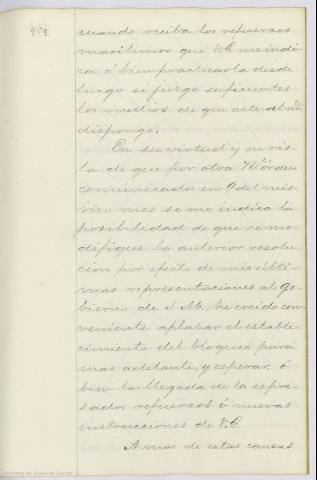 959.
cuando reciba los refuerzos
maritimos que V.E. me indi-
ca ó bien practicarla desde
luego si juzgo suficientes
los medios de que actualm.te
dispongo.
En su virtud y en vis-
ta de que por otra Rl. órden
comunicada en 9 del mis-
mo mes se me indica la
posibilidad de que se mo-
difique la anterior resolu-
cion por efecto de mis últi-
mas representaciones al Go-
bierno de S.M., he creido con-
veniente aplazar el estable-
cimiento del bloqueo para
mas adelante, y esperar, ó
bien la llegada de los espre-
sados refuerzos ó nuevas
instrucciones de V.E.
A mas de estas causas